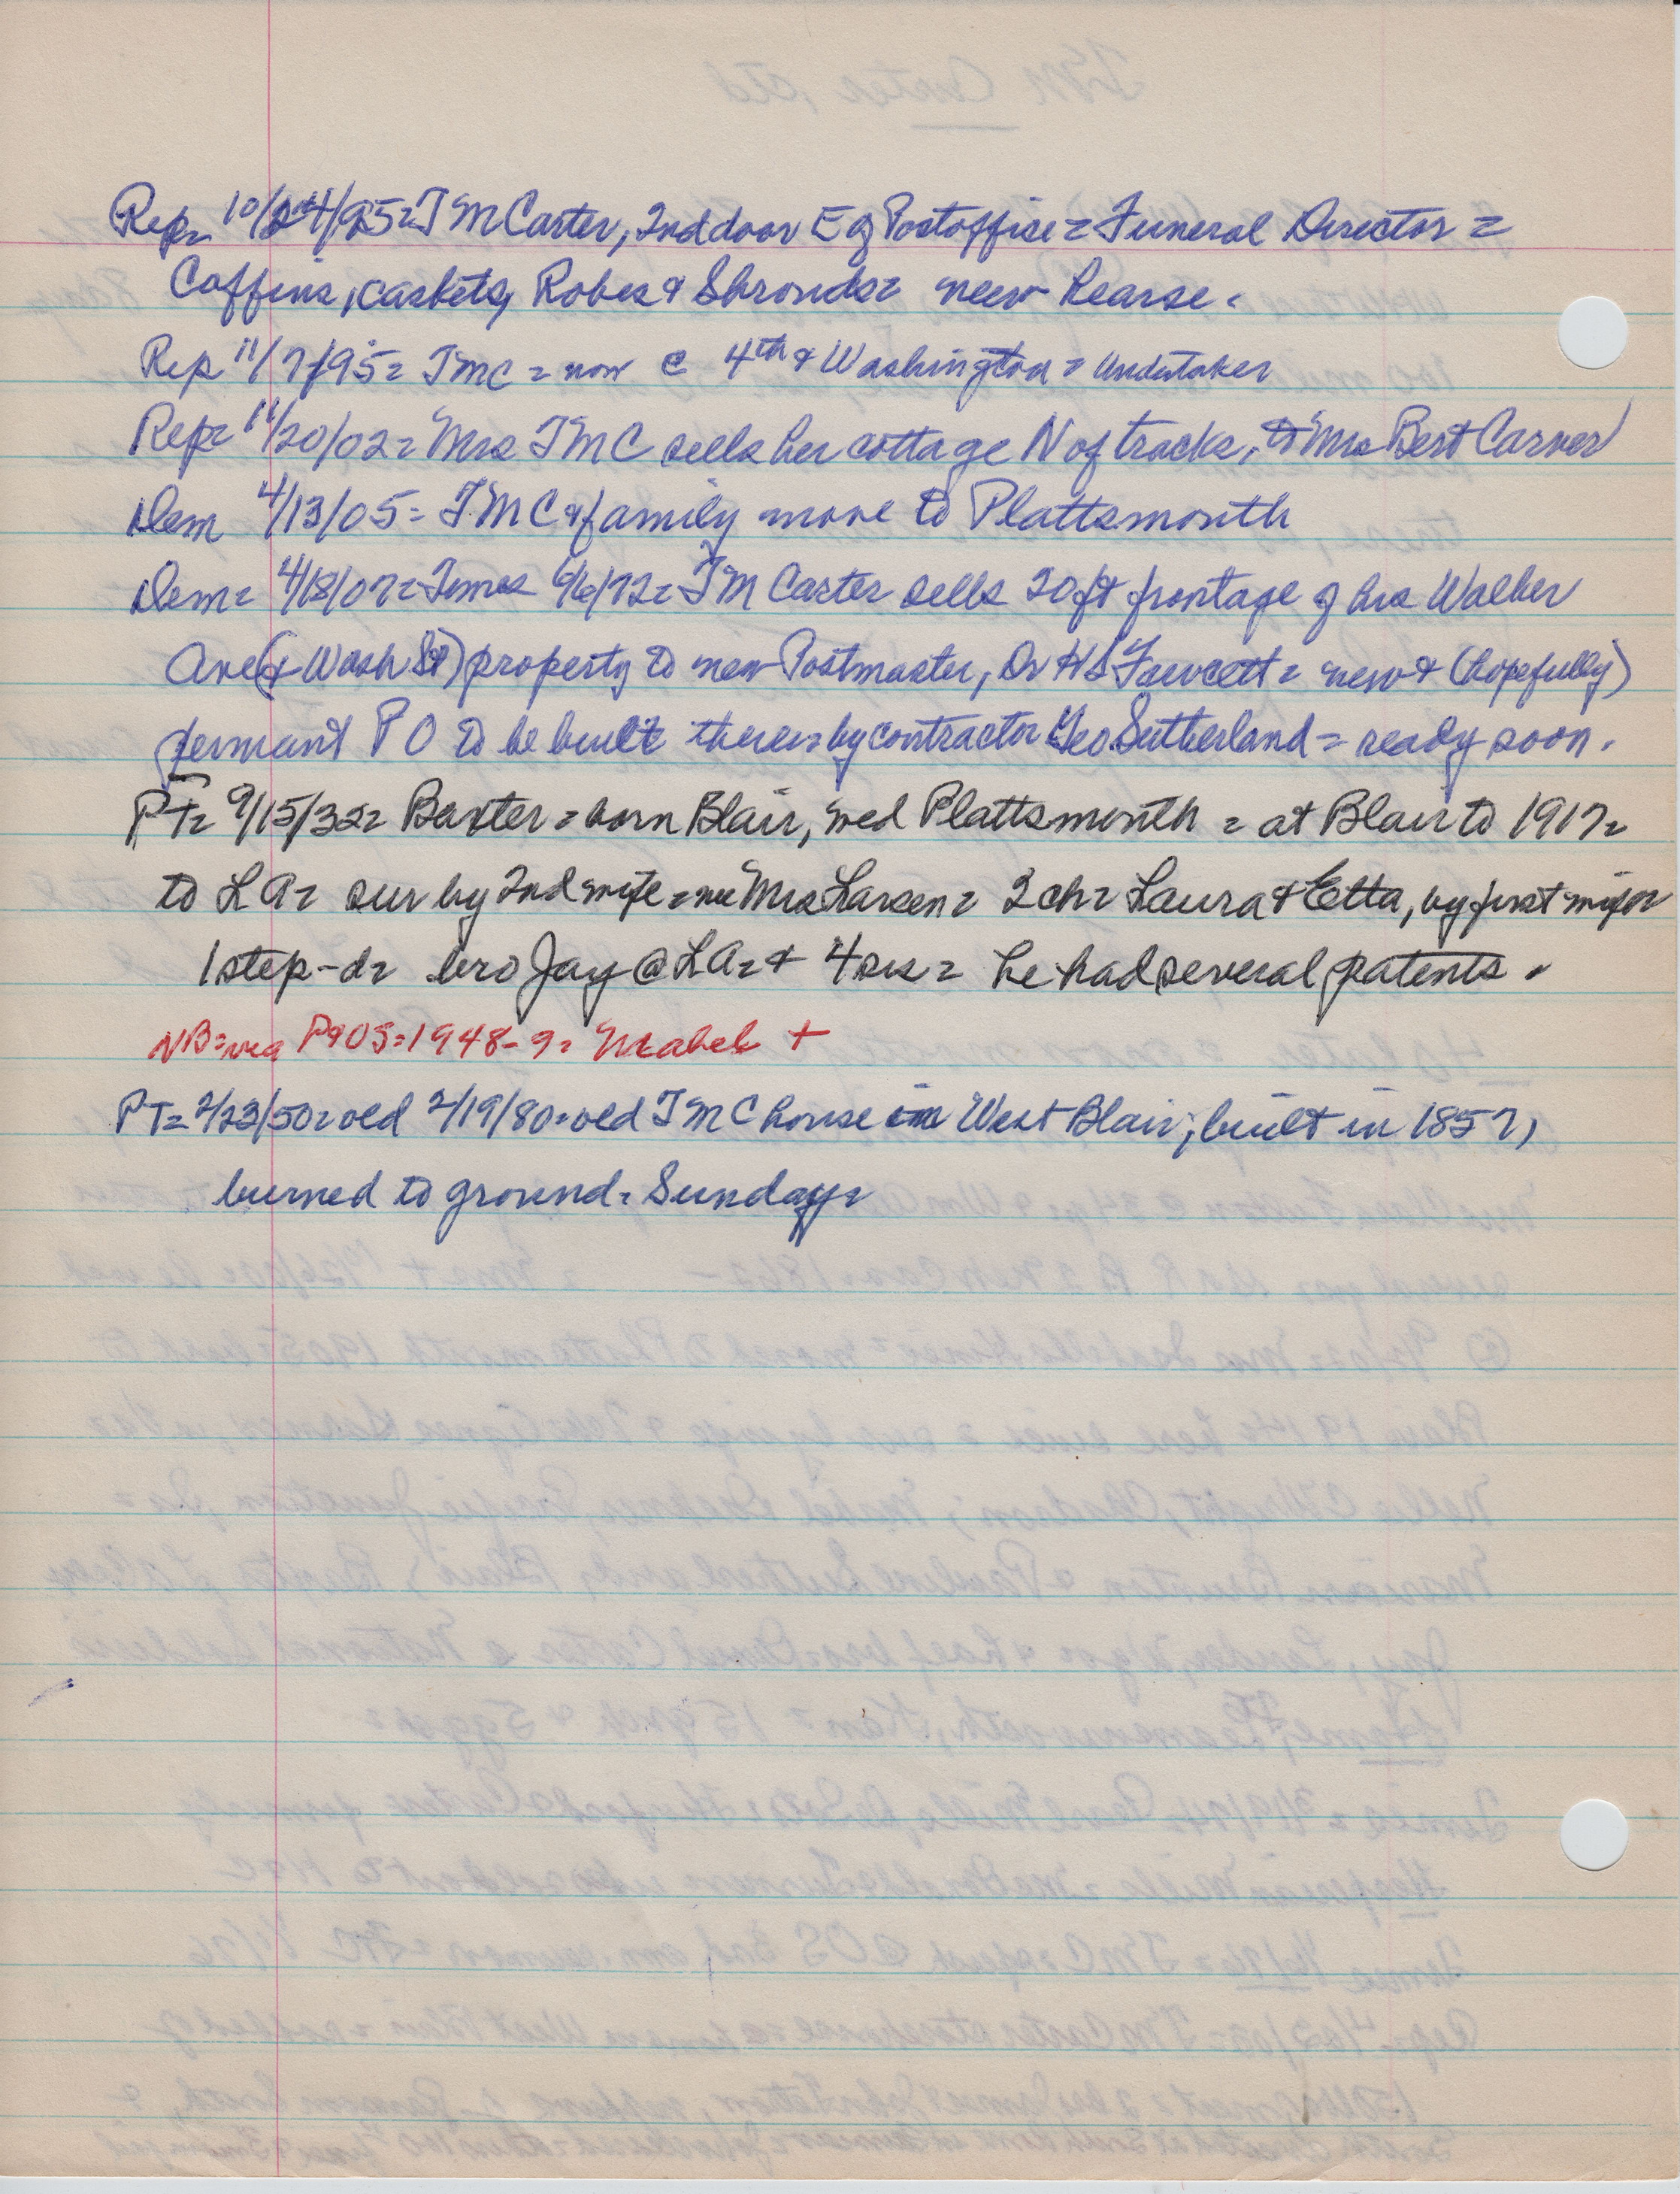 Rep= 10/24/95= TM Carter, 2nd door E of Postoffice = Funeral Director =
Coffins, caskets, Robes & Shrouds= new hearse.
Rep 11/7/95= TMC = now @ 4th & Washington = Undertaker
Rep= 11/20/02= Mrs TMC sells her cottage N of tracks, to Mrs Bert Carver
Dem 4/13/05= TMC & family move to Plattsmouth
Dem= 4/18/07= Times 4/6/72= TM Carter sells 20 ft frontage of his Walker
Ave (& Wash St) property to new Postmaster, Dr HS Fawcett = new & (hopefully)
permant PO to be built there= by contractor Geo Sutherland = ready soon.
PT= 9/15/32= Baxter = born Blair, wed Plattsmouth = at Blair to 1917=
to LA= sur by 2nd wife = nee Mrs Larsen= 2 ch= Laura & Etta, by first wife=
1 step-d= bro Jay @ LA= & 4 sis = he had several patents.
NB= via P905=1948-9= Mabel +
PT= 2/23/50= old 2/19/80= old TMC house in West Blair, built in 1857,
burned to ground= Sunday=